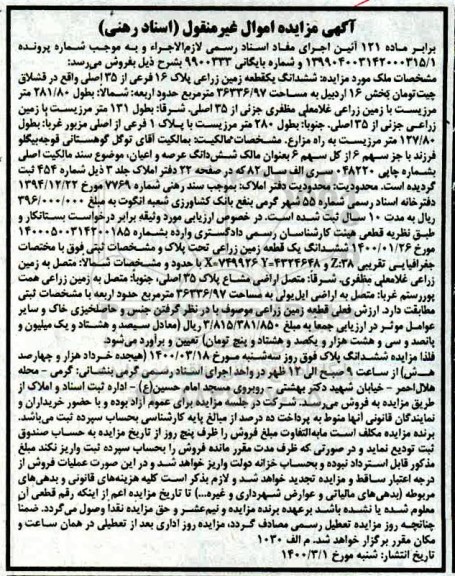 آگهی مزایده اموال غیرمنقول (اسناد رهنی)
برابر ماده ۱۲۱ آئین اجرای مفاد اسناد رسمی لازم‌الاجراء و به موجب شماره پرونده
۱۳۹۹۰۴۰۰۳۱۴۲۰۰۰۳۱۵/۱ و شماره بایگانی ۹۹۰۰۳۳۳ بشرح ذیل بفروش می‌رسد:
مشخصات ملک مورد مزایده: ششدانگ یکقطعه زمین زراعی پلاک ۱۶ فرعی از ۳۵ اصلی واقع در قشلاق
چپت‌نومان بخش ۱۶ اردبیل به مساحت ۳۶۳۳۶/۹۷ مترمربع حدود اربعه: شمالاً: بطول ۲۸۱/۸۰ متر
مرزیست با زمین زراعی غلامعلی مظفری جزئی از ۳۵ اصلی، شرقاً: بطول ۱۳۱ متر مرزیست با زمین
زراعی جزئی از ۳۵ اصلی، جنوباً: بطول ۲۸۰ متر مرزیست با پلاک ۱ فرعی از اصلی مزبور غرباً: بطول
۱۲۷/۸۰ متر مرزیست به راه مزارع. مشخصات مالکیت: بمالکیت آقای توگل گوهستانی قوجه‌بیگلو
فرزند با جز سهم ۶ از کل سهم ۶ بعنوان مالک شش‌دانگ عرصه و اعیان، موضوع سند مالکیت اصلی
بشماره چاپی ۰۴۸۲۲۰ سری الف سال ۸۲ که در صفحه ۲۲ دفتر املاک جلد ۳ ذیل شماره ۴۵۴ ثبت
گردیده است. محدودیت: محدودیت دفتر املاک: بموجب سند رهنی شماره ۷۷۶۹ مورخ ۱۳۹۴/۱۲/۲۲
دفترخانه اسناد رسمی شماره ۵۵ شهر گرمی بنفع بانک کشاورزی شعبه انگوت به مبلغ ۳۹۶/۰۰۰/۰۰۰
ریال به مدت ۱۰ سال ثبت شده است. در خصوص ارزیابی مورد وثیقه برابر درخواست بستانکار و
طبق نظریه قطعی هیئت کارشناسان رسمی دادگستری وارده بشماره ۱۴۰۰۰۵۰۰۳۱۴۲۰۰۰۱۸۵
مورخ ۱۴۰۰/۰۱/۲۶ ششدانگ یک قطعه زمین زراعی تحت پلاک و مشخصات ثبتی فوق با مختصات
جغرافیایی تقریبی Z:۳۸ Y=۴۳۲۴۶۴۸ X=۷۴۹۹۲۶ با حدود و مشخصات شمالاً: متصل به زمین
زراعی غلامعلی مظفری، شرقاً: متصل اراضی مشاع پلاک ۳۵ اصلی، جنوباً: متصل به زمین زراعی همت
پوررستم غرباً: متصل به اراضی ایل‌یولی به مساحت ۳۶۳۳۶/۹۷ مترمربع حدود اربعه با مشخصات ثبتی
مطابقت دارد. ارزش فعلی قطعه زمین زراعی موصوف با در نظر گرفتن جنس و حاصلخیزی خاک و سایر
عوامل موثر در ارزیابی جمعاً به مبلغ ۳/۸۱۵/۳۸۱/۸۵۰ ریال (معادل سیصد و هشتاد و یک میلیون و
پانصد و سی و هشت هزار و یکصد و هشتاد و پنج تومان) تعیین و برآورد می‌شود.
فلذا مزایده ششدانگ پلاک فوق روز سه‌شنبه مورخ ۱۴۰۰/۰۳/۱۸ (هیجده خرداد هزار و چهارصد
هـ.ش) از ساعت ۹ صبح الی ۱۲ ظهر در واحد اجرای اسناد رسمی گرمی بنشانی: گرمی – محله
هلال‌احمر – خیابان شهید دکتر بهشتی – روبروی مسجد امام حسین(ع) – اداره ثبت اسناد و املاک از
طریق مزایده به فروش می‌رسد. شرکت در جلسه مزایده برای عموم آزاد بوده و با حضور خریداران و
نمایندگان قانونی آنها منوط به پرداخت ده درصد از مبالغ پایه کارشناسی بحساب سپرده ثبت می‌باشد.
برنده مزایده مکلف است مابه‌التفاوت مبلغ فروش را ظرف پنج روز از تاریخ مزایده به حساب صندوق
ثبت تودیع نماید و در صورتی که ظرف مدت مقرر مانده فروش را بحساب سپرده ثبت واریز نکند مبلغ
مذکور قابل استرداد نبوده و بحساب خزانه دولت واریز خواهد شد و در این صورت عملیات فروش از
درجه اعتبار ساقط و مزایده تجدید خواهد شد و لازم بذکر است کلیه هزینه‌های قانونی و بدهی‌های
مربوطه (بدهی‌های مالیاتی و عوارض شهرداری و غیره...) تا تاریخ مزایده اعم از اینکه رقم قطعی آن
معلوم شده یا نشده باشد برعهده برنده مزایده و نیم‌عشر و حق مزایده نقداً وصول می‌گردد. ضمناً
چنانچه روز مزایده تعطیل رسمی مصادف گردد، مزایده روز اداری بعد از تعطیلی در همان ساعت و
مکان مقرر برگزار خواهد شد. م الف ۱۰۳۰
تاریخ انتشار: شنبه مورخ ۱۴۰۰/۳/۱